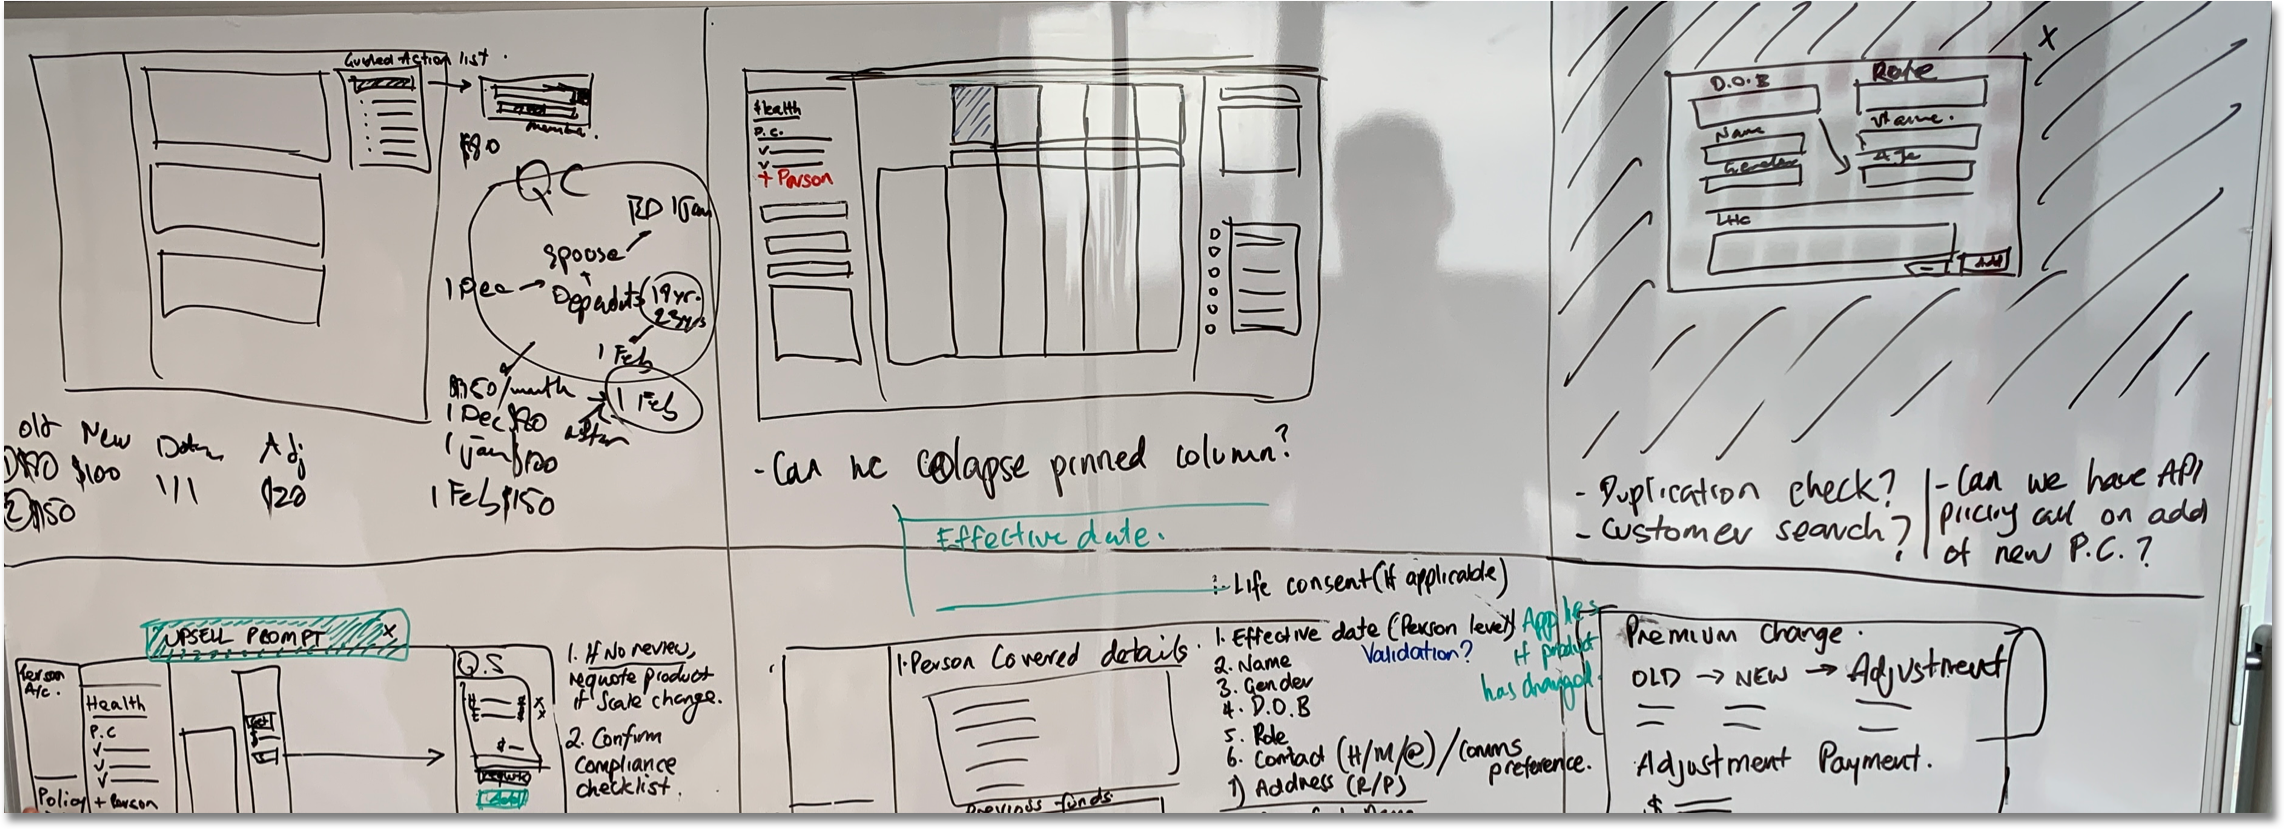 Guided Action list.
$80
Q.C
1 Jan
Spouse
1 Dec
19yr.
23yrs
1 Feb
1 Feb
$150/month
1 Dec $80
1 Jan $100
1 Feb $150
Old New Adj
$100 1/1 $20
② $150
Health
P.C.
+ Person
- Can we colapse pinned column?
Effective date.
X
D.O.B Role
Name
Gender Age
LHC
Add
- Duplication check?
- Customer search?
- Can we have API
pricing call on add
of new P.C.?
UPSELL PROMPT X
Person
A/c.
Health
P.C
+ Person
Policy
Q.S
$ -
1. If No review,
requote product
if scale change.
2. Confirm
compliance
checklist.
1. Person Covered details.
Previous funds
- Life consent (If applicable)
1. Effective date (Person level)
Validation?
Applies
if product
has changed.
2. Name
3. Gender
4. D.O.B
5. Role
6. Contact (H/M/@) / Comms
preference.
7) Address (R/P)
Premium Change.
OLD → NEW → Adjustment
Adjustment Payment.
$